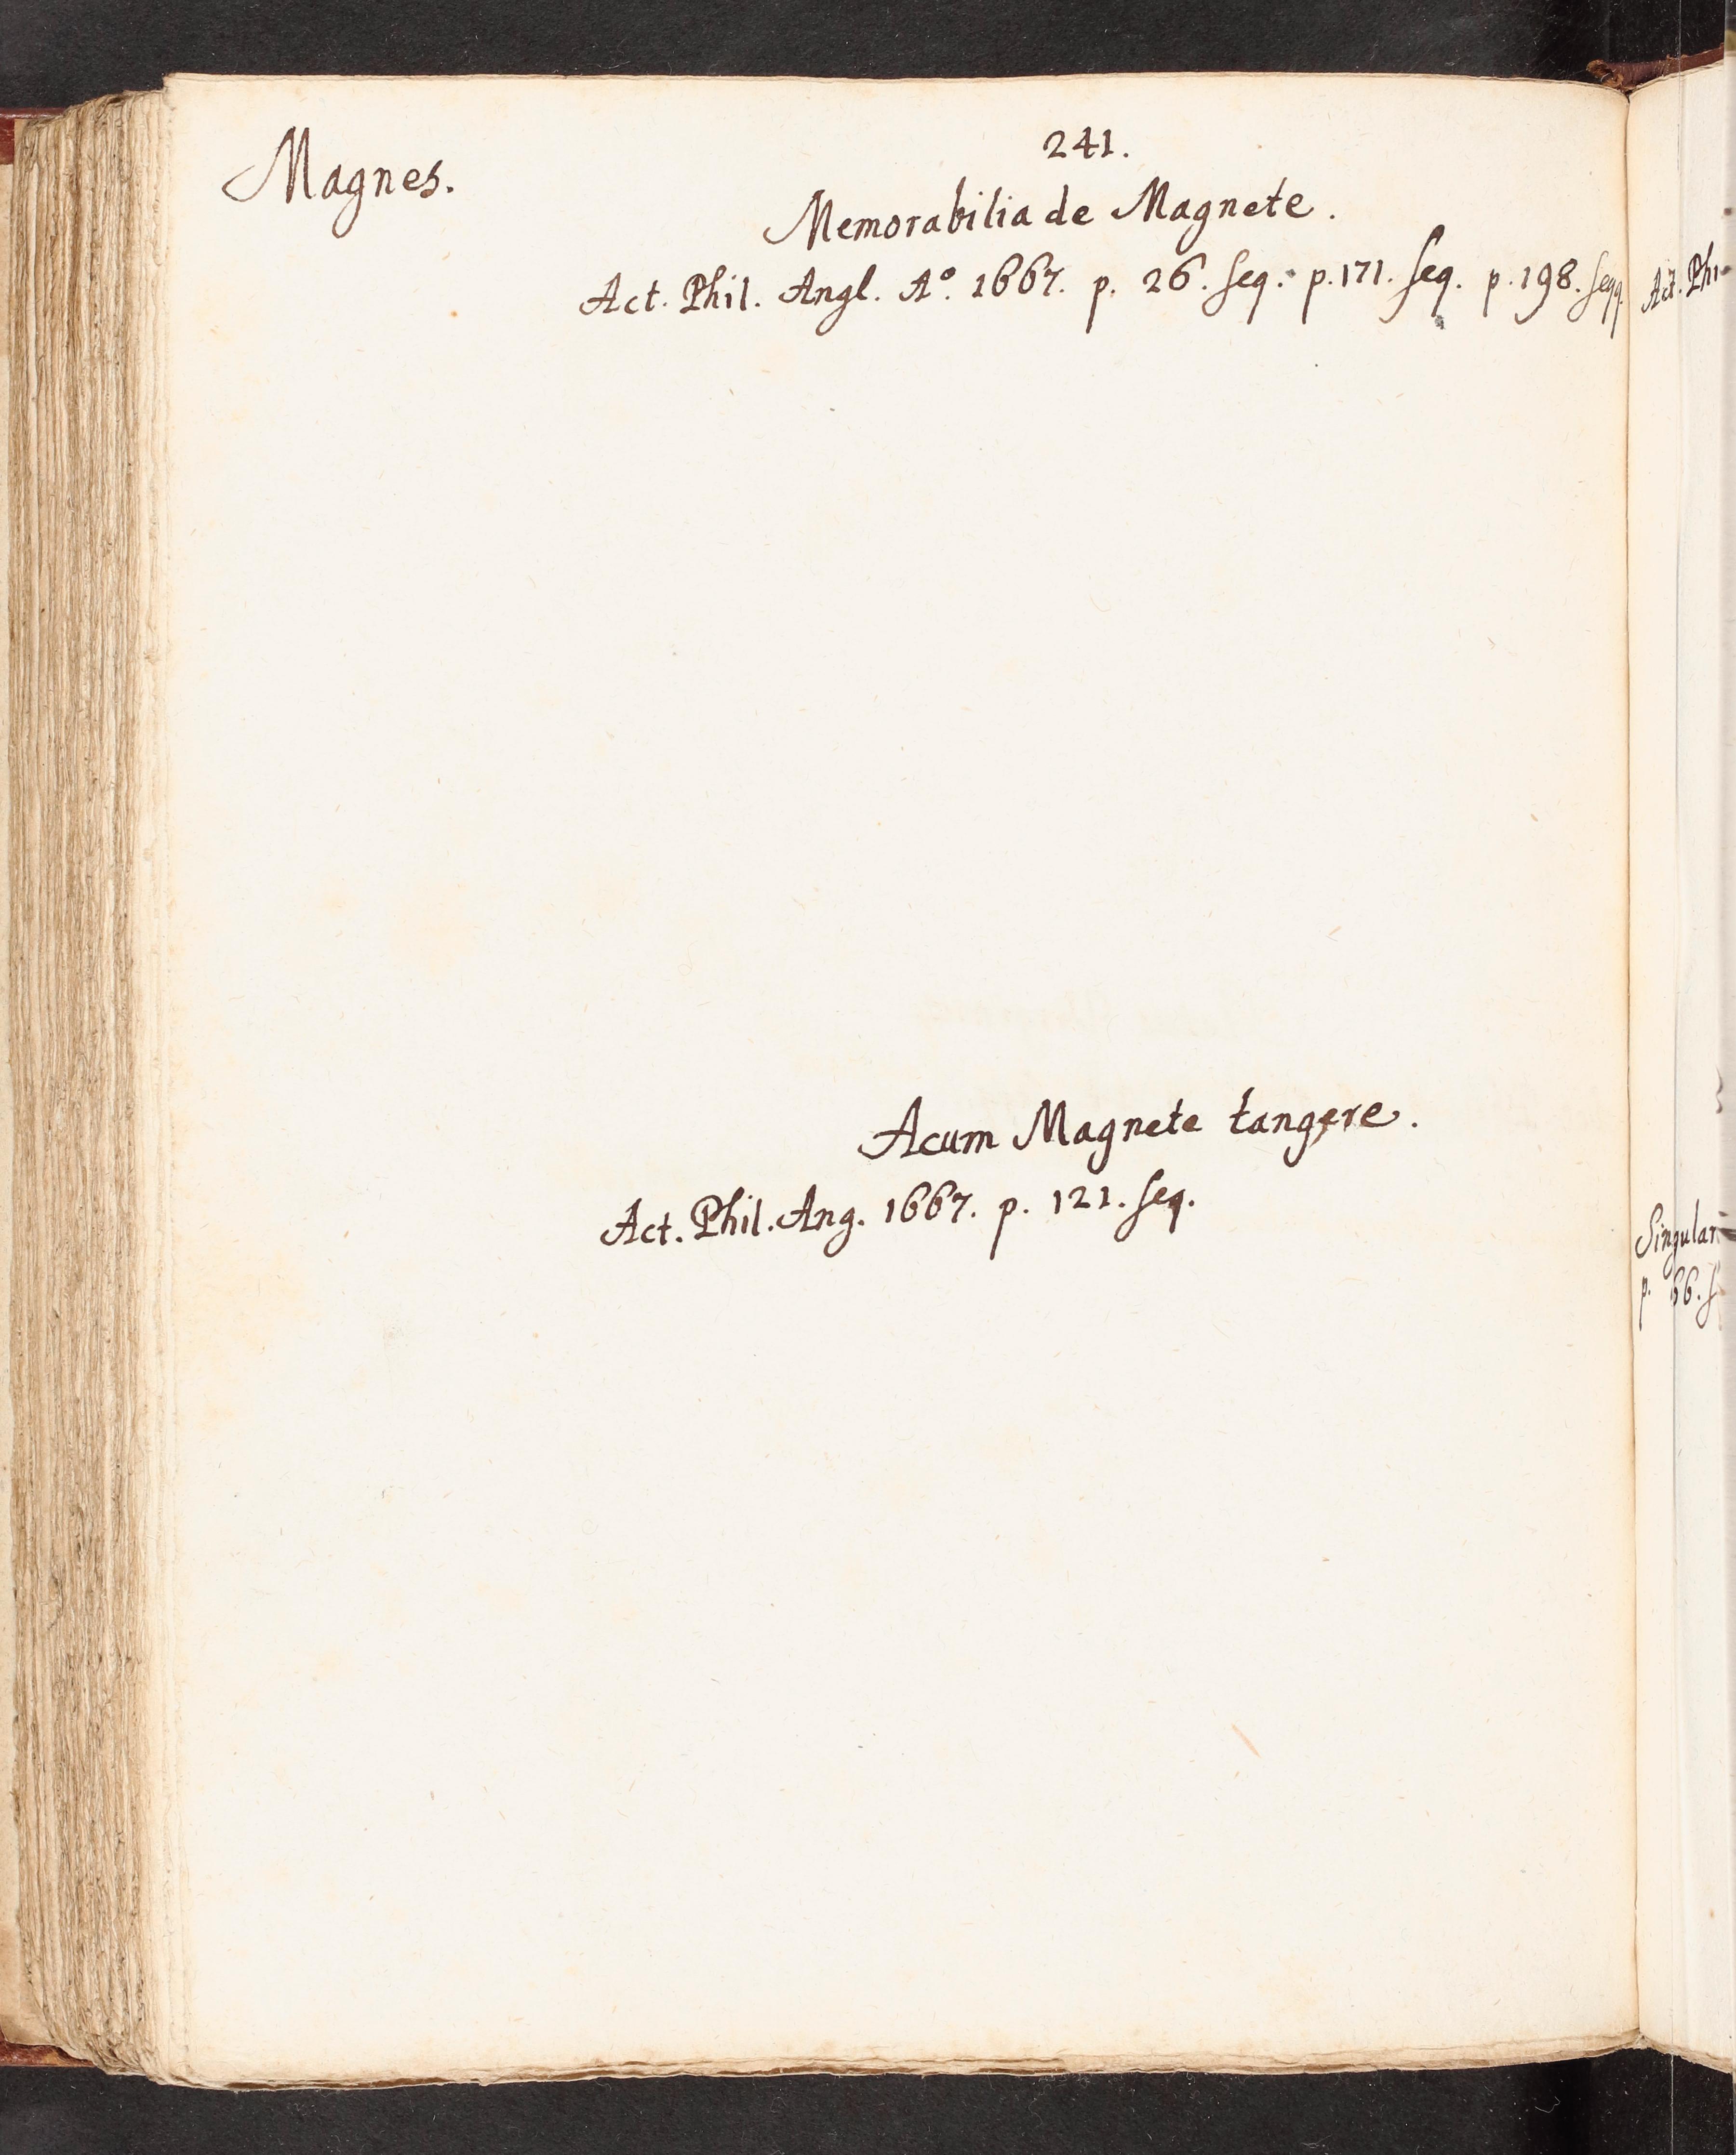 241.
Magnes.
Memorabilia de Magnete.
Act. Phil. Angl. Aº. 1667. p. 26. seq. p. 171. seq. p. 198. seqq.
Acum Magnete tangere.
Act. Phil. Ang. 1667. p. 121. seq.
Act. Phi
Singular
p. 66. s